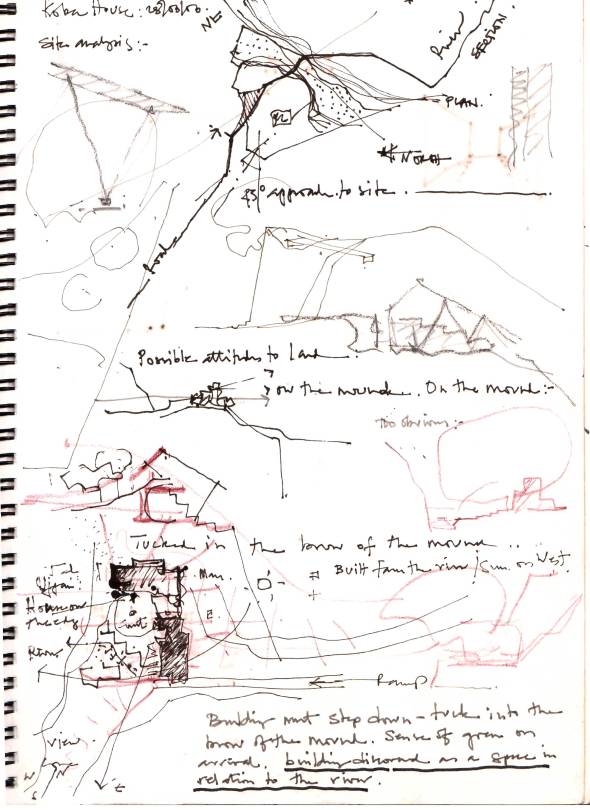 House :
NE
River
SECTION.
Site analysis :-
PLAN.
NORTH
45° approach to site.
Road
Possible attitudes to Land
on the mound. On the mound :-
Too obvious :-
Tucked in the brow of the mound ..
Built Form the river / Sun on West.
River
Ramp
View
N
Building must step down - tuck into the
brow of the mound. Sense of on
arrival. building discovered as a space in
relation to the river.